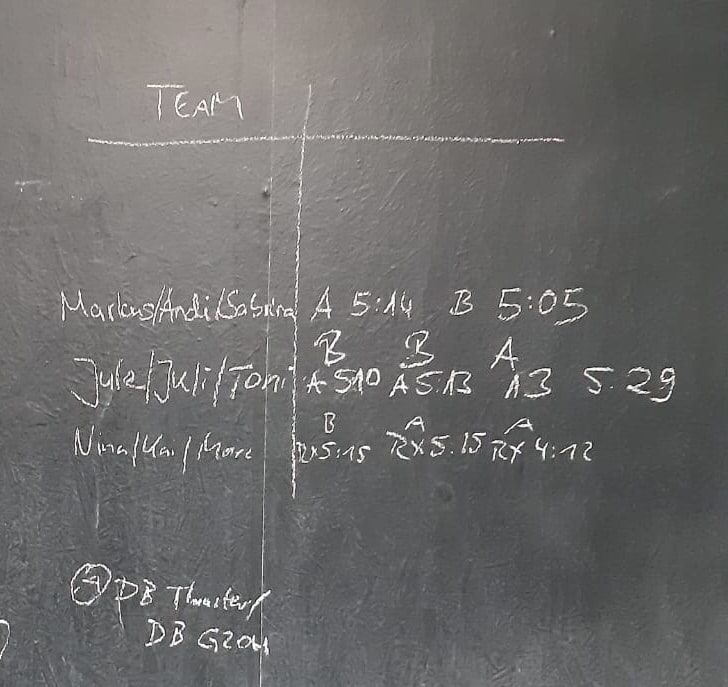 TEAM
Markus/Andi/Sabrina A 5:14 B 5:05
B B A
Jule/Juli/Toni A 5:10 A 5:13 A3 5.29
B A A
Nina/Kai/Marc RX 5:15 RX 5.15 RX 4:12
A DB Thruster/
DB G2OH